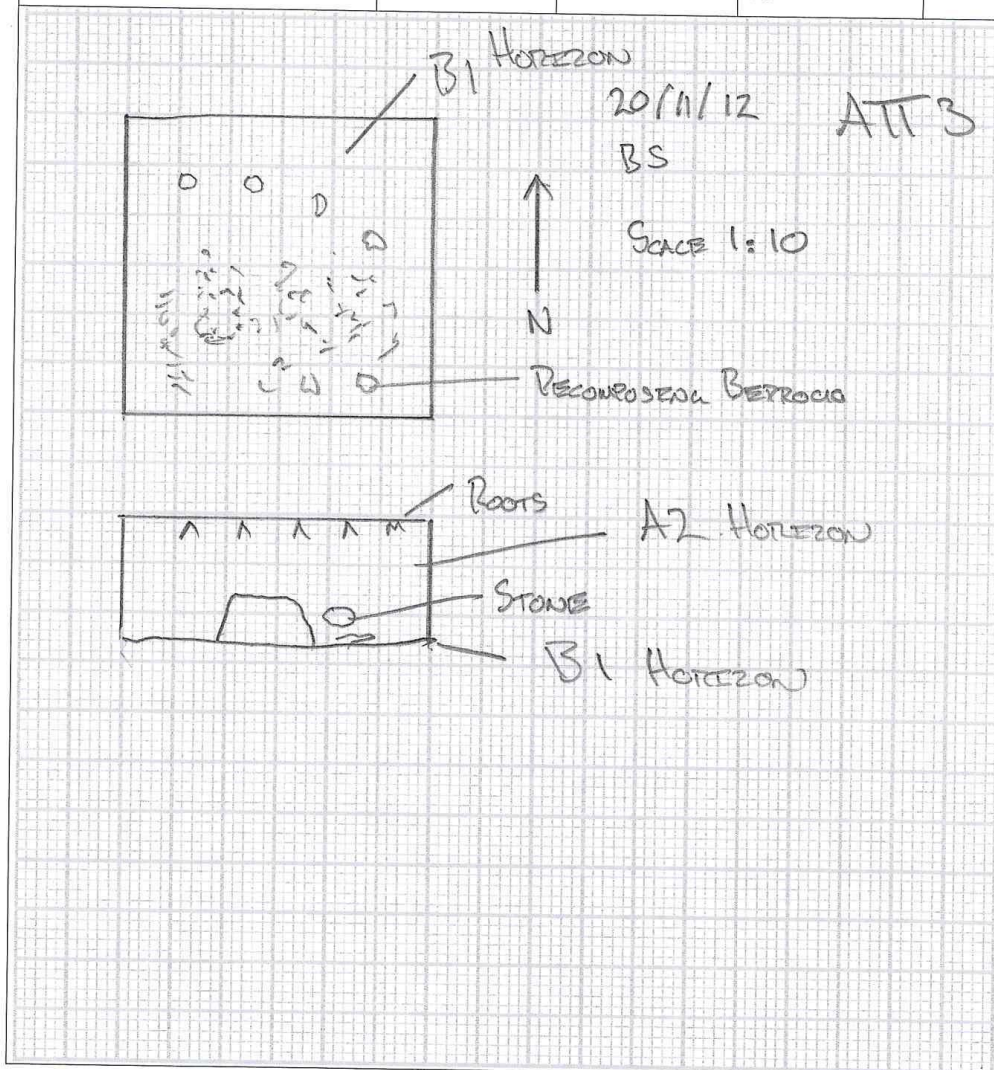 B1 HORIZON
20/11/12
BS
ATT 3
SCALE 1:10
N
DECOMPOSING BEDROCK
ROOTS
A2 HORIZON
STONE
B1 HORIZON